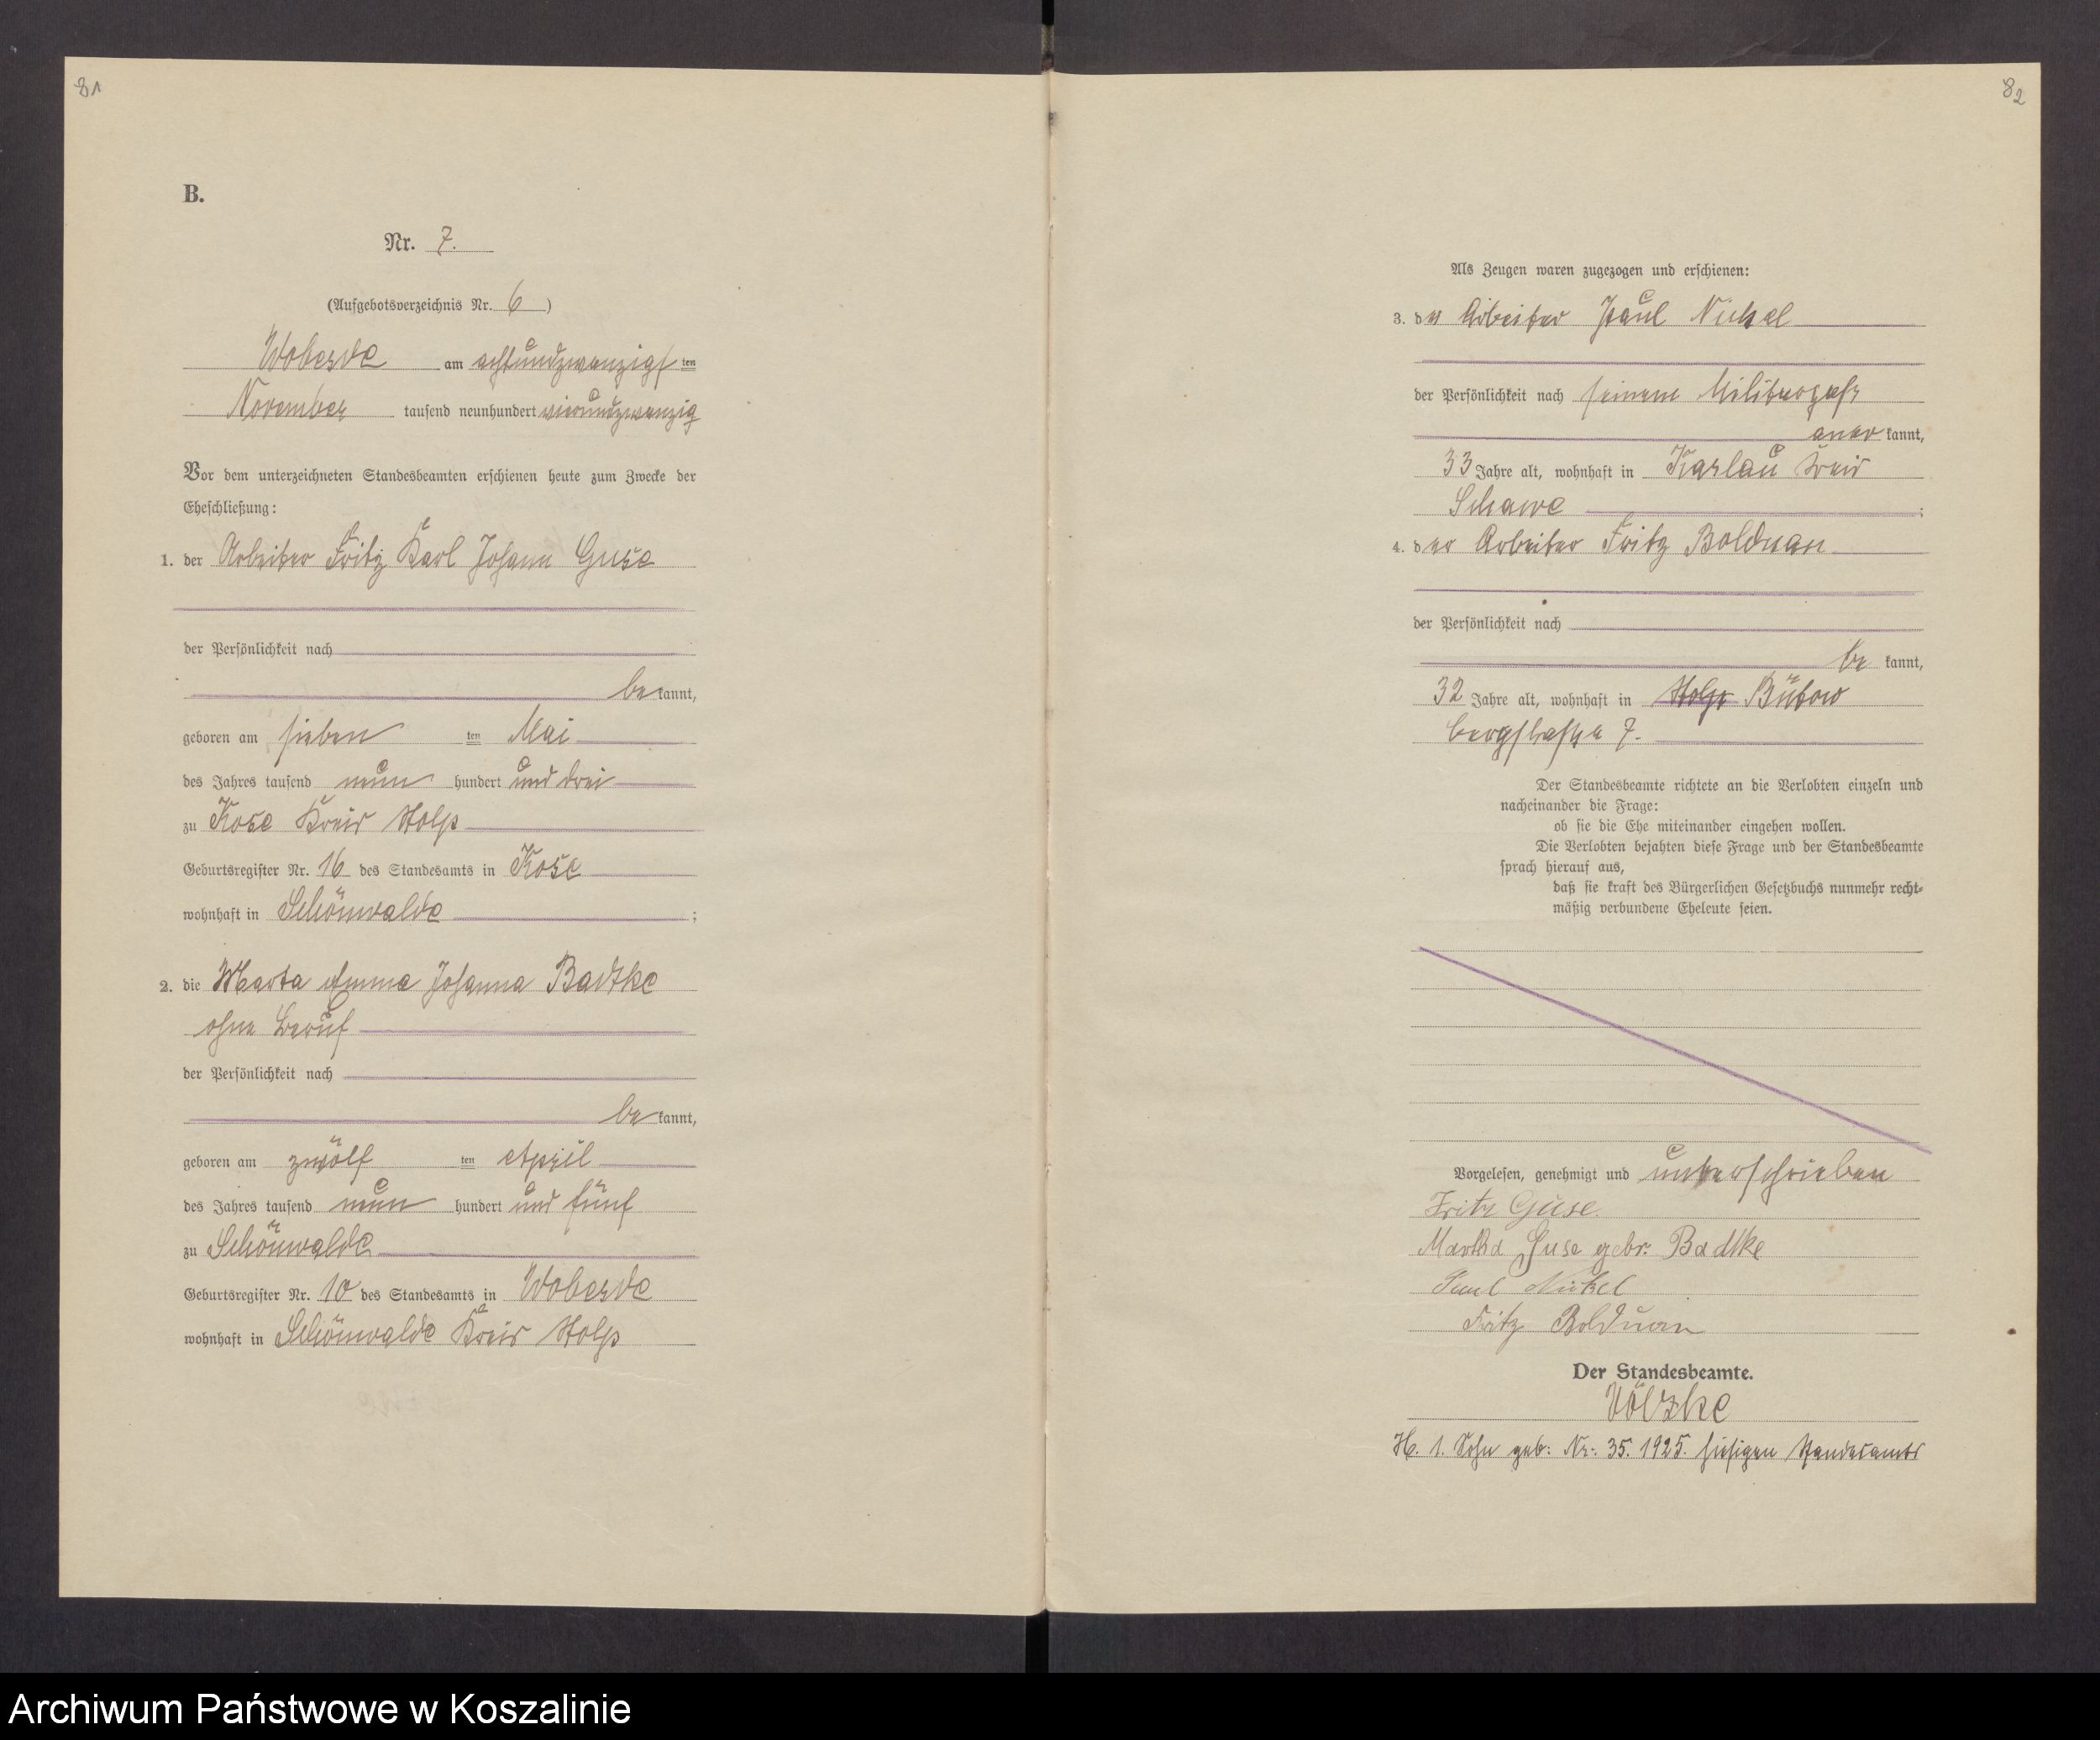 81
B.
Nr. 7.
(Aufgebotsverzeichnis Nr. 6)
Wobesde am achtundzwanzigsten
November tausend neunhundert vierundzwanzig
Vor dem unterzeichneten Standesbeamten erschienen heute zum Zwecke der
Eheschließung:
1. der Arbeiter Fritz Karl Johann Guse
der Persönlichkeit nach
bekannt,
geboren am sieben ten Mai
des Jahres tausend neun hundert und drei
zu Kose Kreis Stolp
Geburtsregister Nr. 16 des Standesamts in Kose
wohnhaft in Schönwalde ;
2. die Marta Emma Johanna Badtke
ohne Beruf
der Persönlichkeit nach
bekannt,
geboren am zwölf ten April
des Jahres tausend neun hundert und fünf
zu Schönwalde
Geburtsregister Nr. 10 des Standesamts in Wobesde
wohnhaft in Schönwalde Kreis Stolp
82
Als Zeugen waren zugezogen und erschienen:
3. der Arbeiter Paul Nickel
der Persönlichkeit nach seinem Militärpaß
anerkannt,
33 Jahre alt, wohnhaft in Karlau Kreis
Schawe ;
4. der Arbeiter Fritz Bolduan
der Persönlichkeit nach
be kannt,
32 Jahre alt, wohnhaft in Stolp Bütow
Bergstraße 7.
Der Standesbeamte richtete an die Verlobten einzeln und
nacheinander die Frage:
ob sie die Ehe miteinander eingehen wollen.
Die Verlobten bejahten diese Frage und der Standesbeamte
sprach hierauf aus,
daß sie kraft des Bürgerlichen Gesetzbuchs nunmehr recht-
mäßig verbundene Eheleute seien.
Vorgelesen, genehmigt und unterschrieben
Fritz Guse.
Martha Guse gebr. Badtke
Paul Nickel
Fritz Bolduan
Der Standesbeamte.
Völzke
H. 1. Sohn geb: Nr: 35. 1925. hiesigen Standesamts
Archiwum Państwowe w Koszalinie